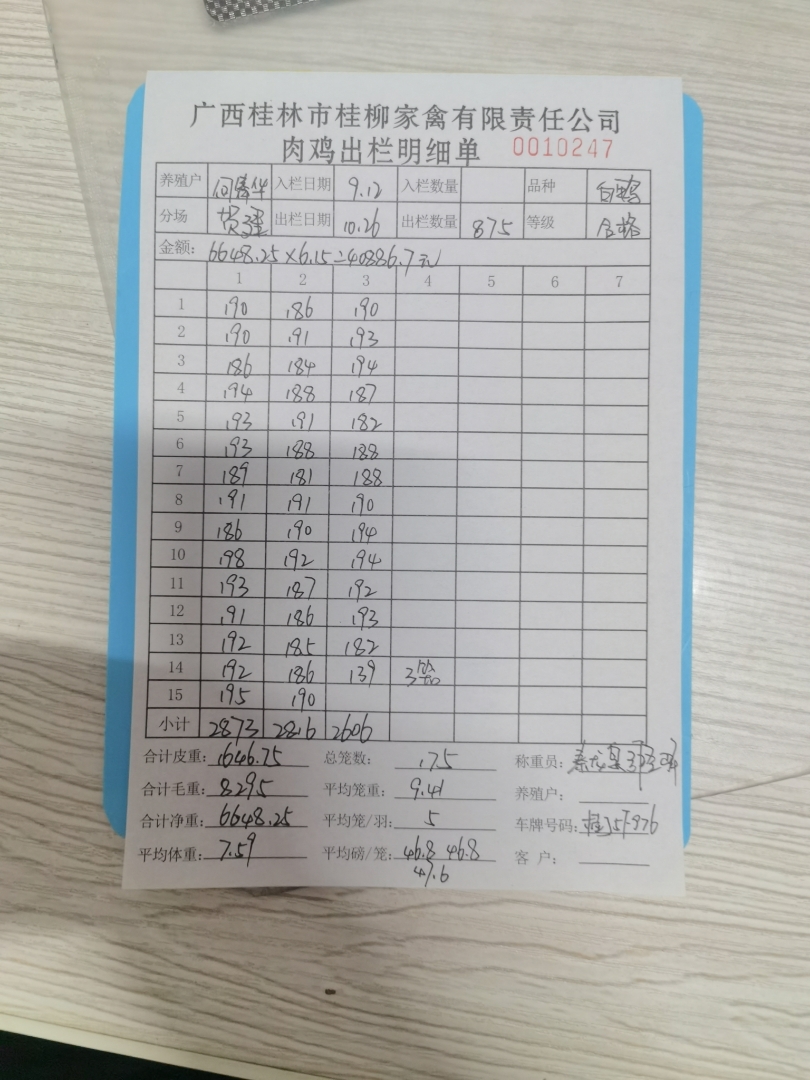 广西桂林市桂柳家禽有限责任公司
肉鸡出栏明细单 0010247
养殖户 入栏日期 9.12 入栏数量 品种 白鸭
分场 出栏日期 10.26 出栏数量 875 等级 合格
金额: 6648.25×6.15=40886.7元
1 2 3 4 5 6 7
1 190 186 190
2 190 191 193
3 186 184 194
4 194 188 187
5 193 191 182
6 193 188 188
7 189 181 188
8 191 191 190
9 186 190 194
10 198 192 194
11 193 187 192
12 191 186 193
13 192 185 182
14 192 186 139 3笼
15 195 190
小计 2873 2816 2606
合计皮重: 1646.75 总笼数: 175 称重员:
合计毛重: 8295 平均笼重: 9.41 养殖户:
合计净重: 6648.25 平均笼/羽: 5 车牌号码:
平均体重: 7.59 平均磅/笼: 46.8 46.8 客 户:
47.6